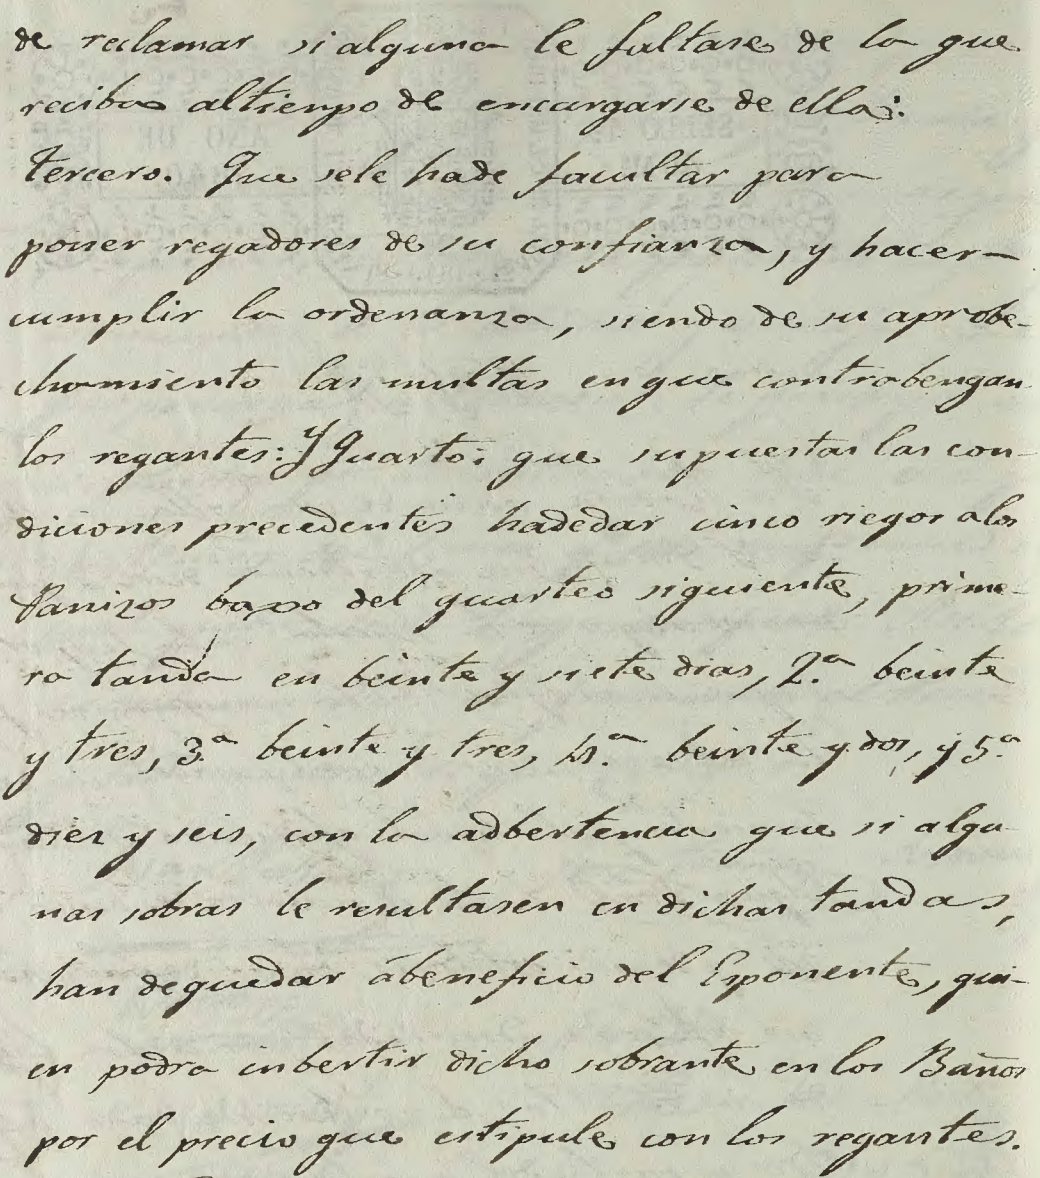 de reclamar si alguna le faltase de la que
reciba altiempo de encargarse de ella:
tercero. Que sele hade facultar para
poner regadores de su confianza, y hacer
cumplir la ordenanza, siendo de su aprobe-
chamiento las multas en que contrabengan
los regantes: y Quarto: que supuestas las con-
diciones precedentes hadedar cinco riegos alos
Panizos baxo del quarteo siguiente, prime-
ra tanda en beinte y siete dias, 2.ª beinte
y tres, 3.ª beinte y tres, 4.ª beinte y dos, y 5.ª
diez y seis, con la adbertencia que si algu-
nas sobras le resultasen en dichas tandas,
han dequedar ábeneficio del Esponente, qui-
en podra inbertir dicho sobrante en los Baños
por el precio que estipule con los regantes.